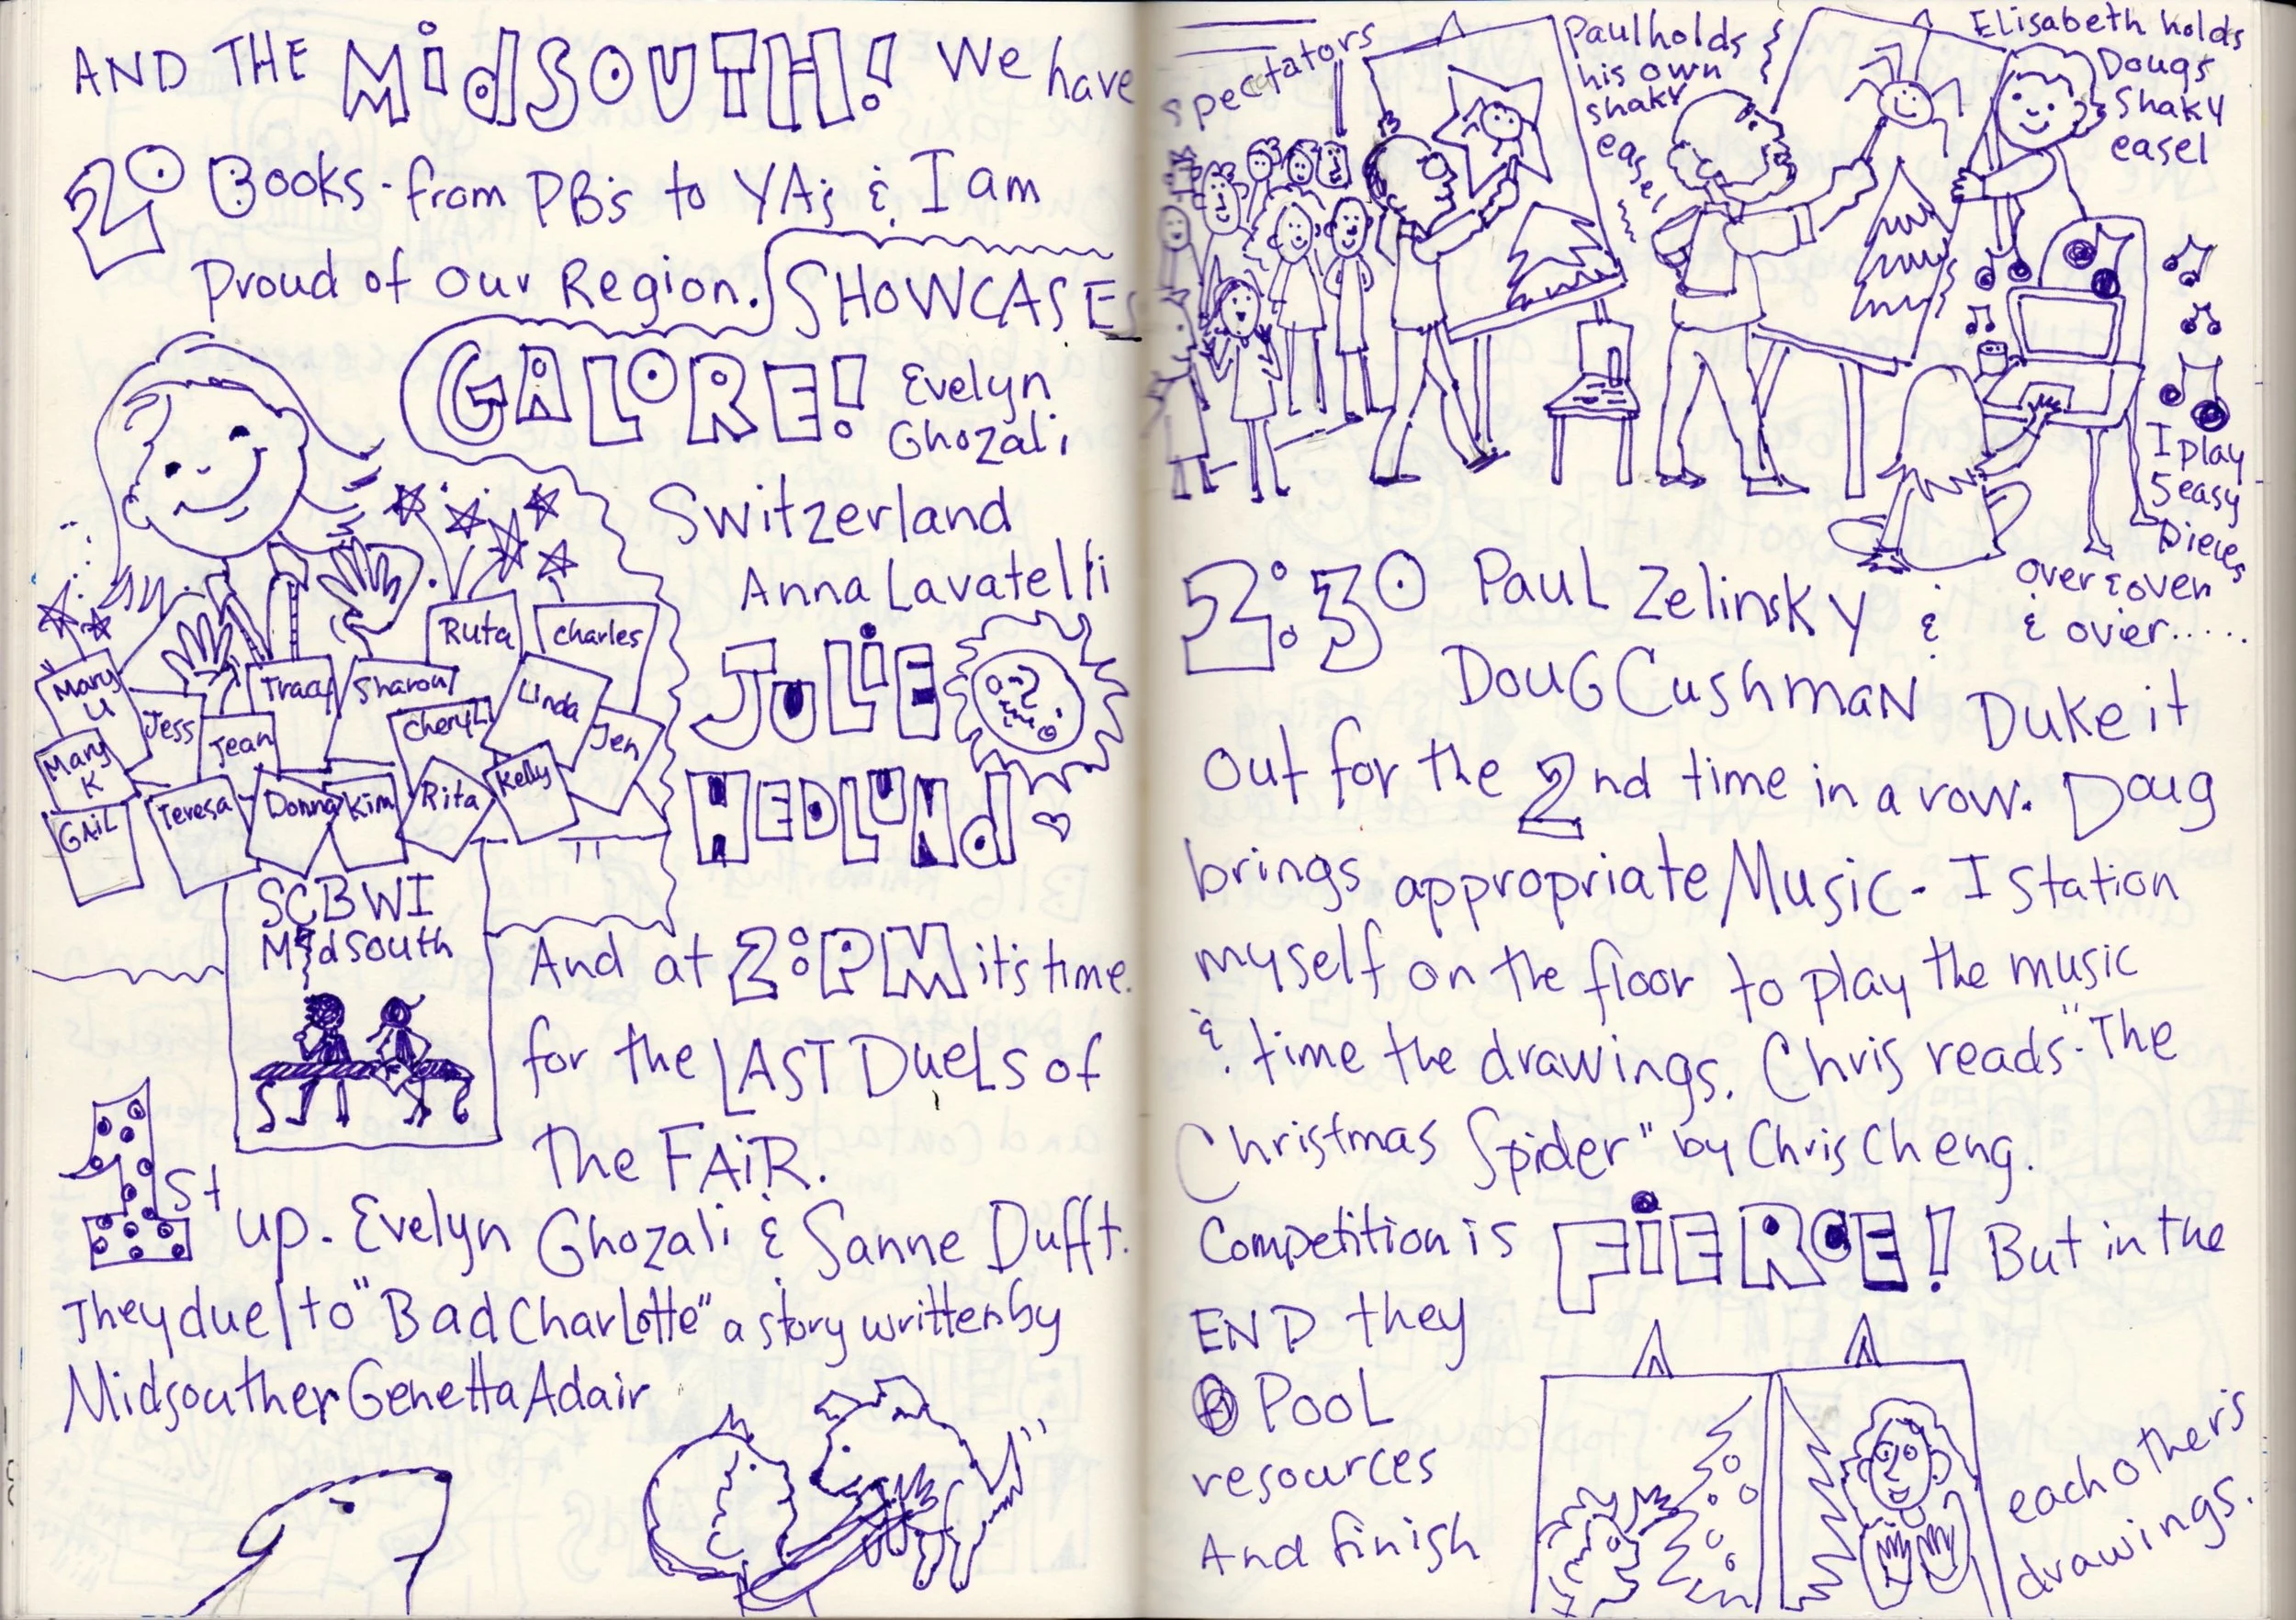 AND THE MidSOUTH! We have
20 Books - from PB's to YA's & I am
Proud of our Region. SHOWCASES
GALORE! Evelyn
Ghozali
Switzerland
Anna Lavatelli
JULiE
HEDLUNd
Ruta
Charles
Mary
U
Jess
Tracy
Sharon
Cheryl
Linda
Jen
Jean
Mary
K
GAiL
Teresa
Donna
Kim
Rita
Kelly
SCBWI
MidSouth
And at 2:PM it's time
for the LAST DUELS of
The FAiR.
1st up. Evelyn Ghozali & Sanne Dufft.
They duel to "Bad Charlotte" a story written by
Midsouther Genetta Adair
spectators
Paul holds
his own
shaky
easel
Elisabeth holds
Dougs
Shaky
easel
I play
5 easy
pieces
over & over
& over.....
2:30 Paul Zelinsky &
Doug Cushman Duke it
out for the 2nd time in a row. Doug
brings appropriate Music - I station
myself on the floor to play the music
& time the drawings. Chris reads "The
Christmas Spider" by Chris Cheng.
Competition is FiERCE! But in the
END they
POOL
resources
And finish
each other's
drawings.